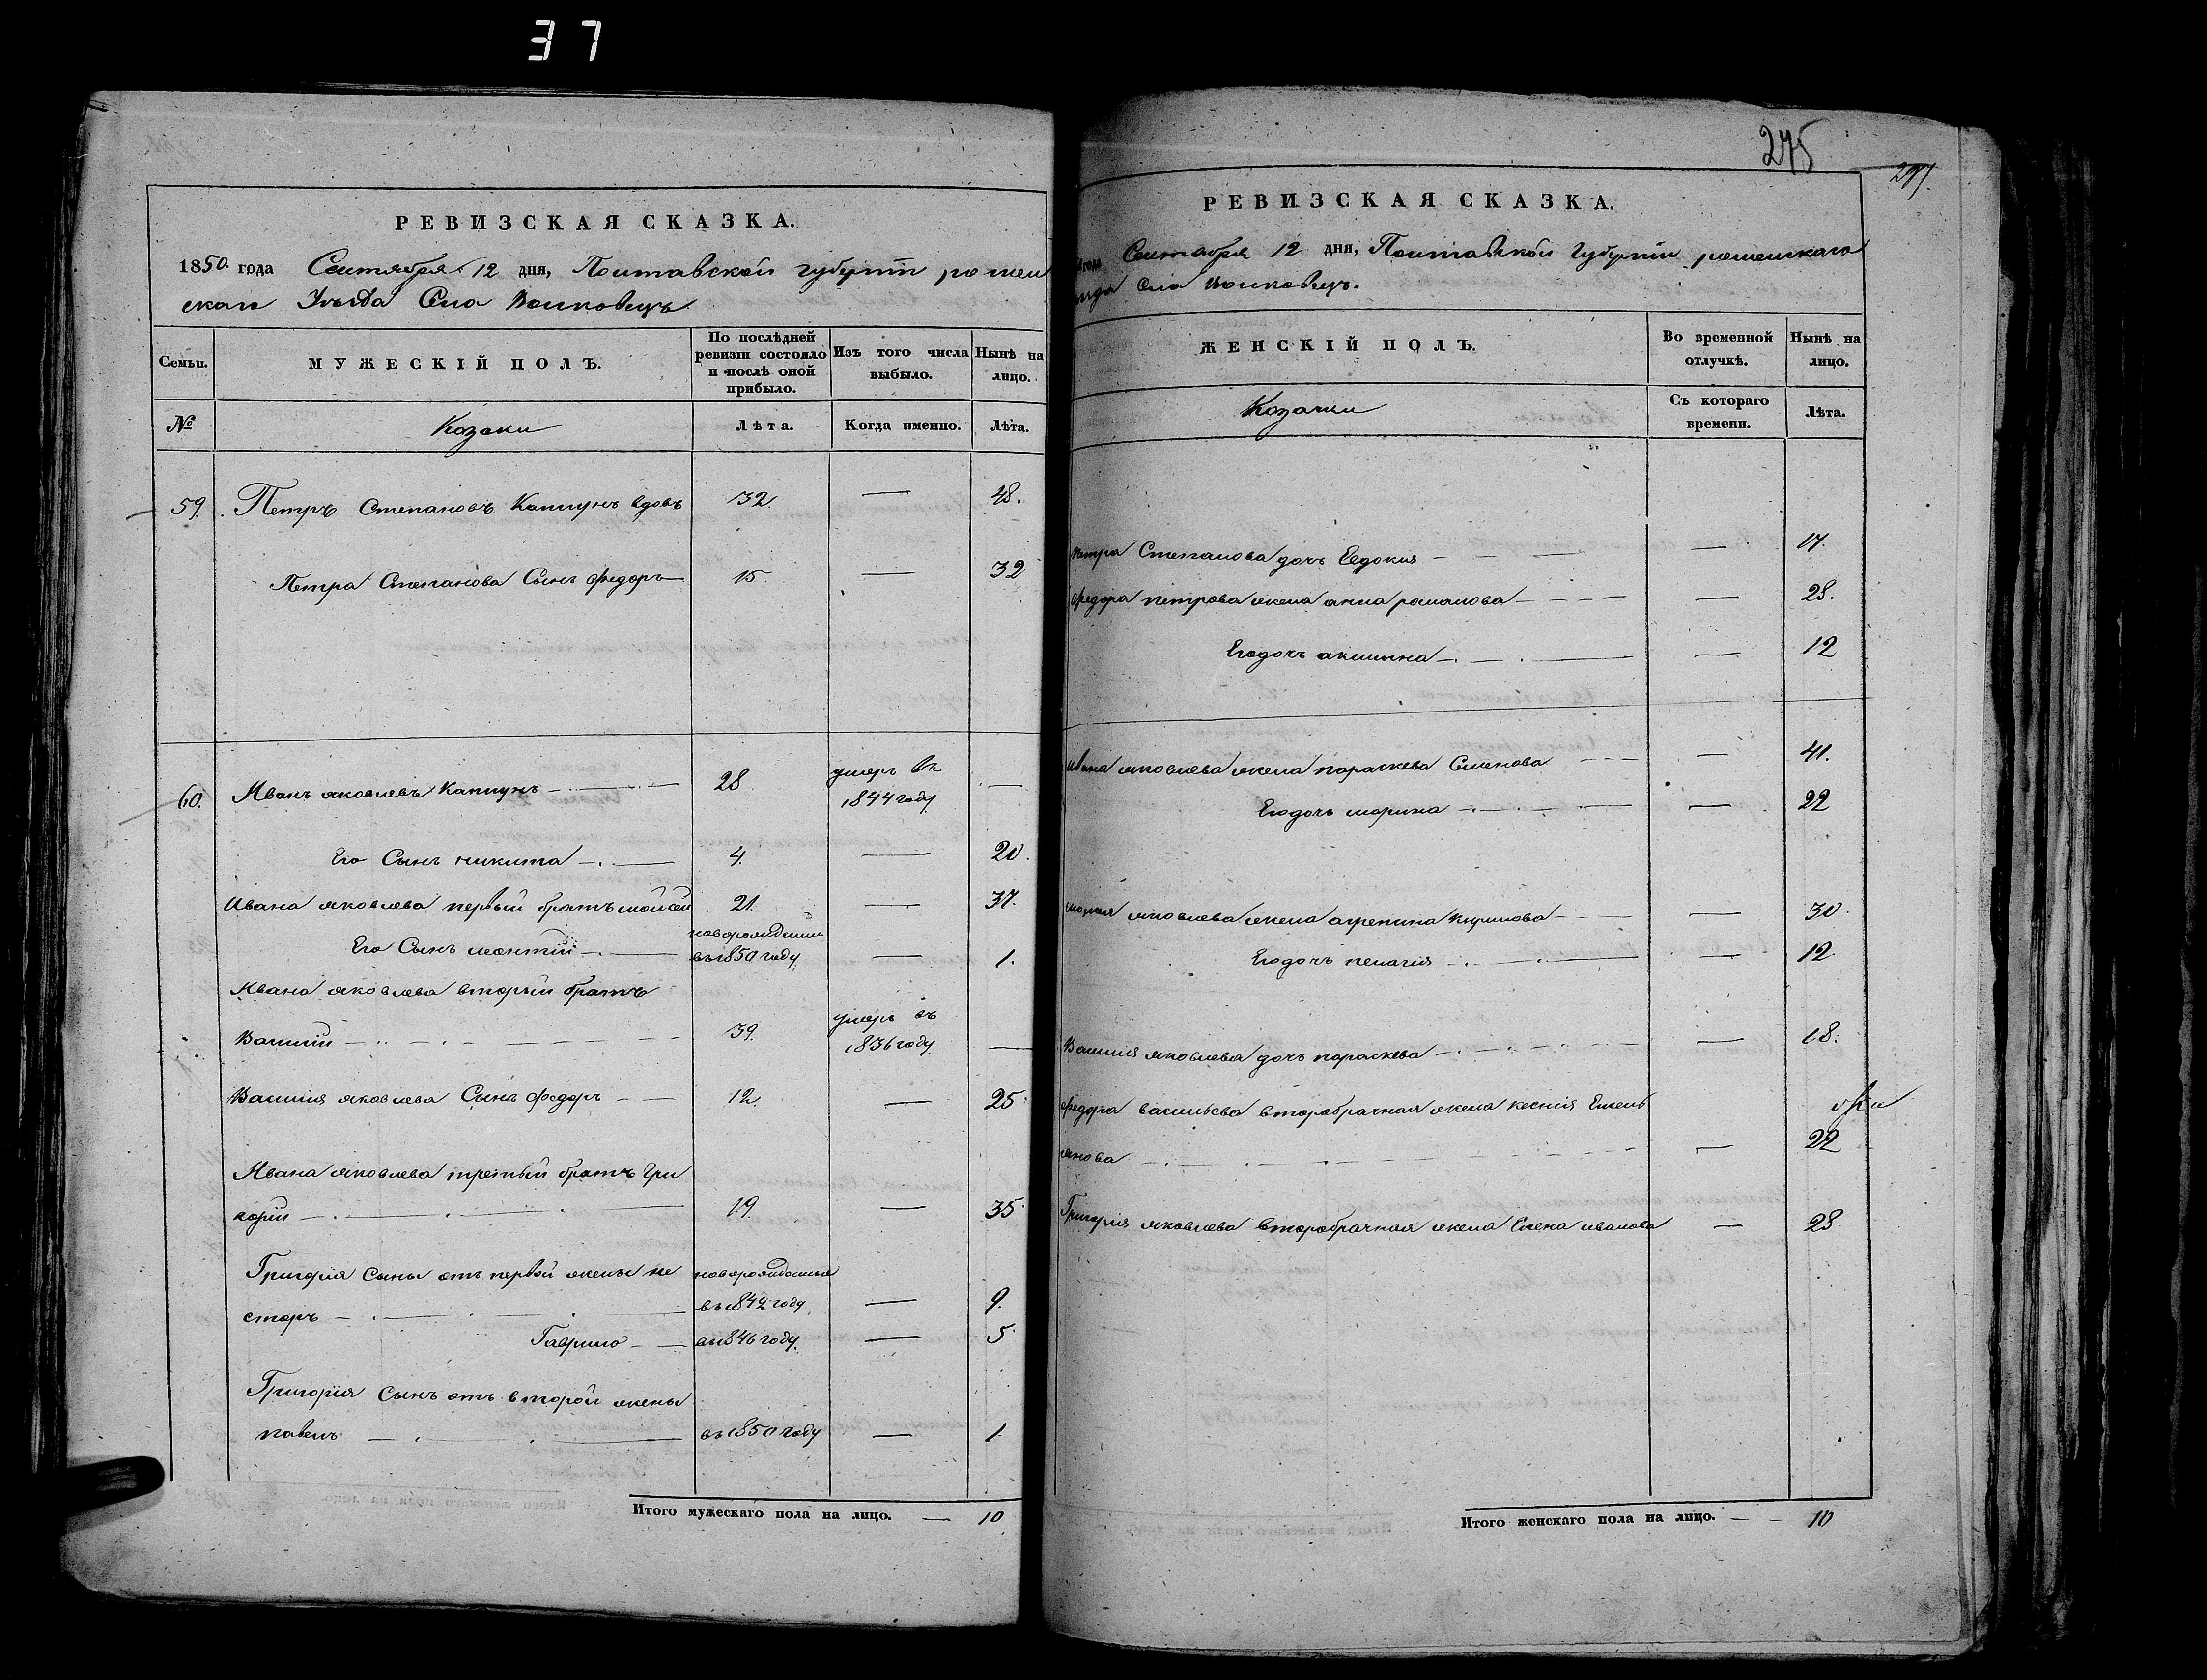 37
РЕВИЗСКАЯ СКАЗКА.
1850 года Сентября 12 дня, Полтавской губерніи ромен
скаго Уезда Села Волковецъ
Семьи.
МУЖЕСКІЙ ПОЛЪ.
По послѣдней ревизіи состояло и послѣ оной прибыло.
Изъ того числа выбыло.
Нынѣ на лицо.
№
Козаки
Лѣта.
Когда именно.
Лѣта.
59. Петръ Степановъ Капцунъ вдовъ 32. — 48.
Петра Степанова Сынъ федоръ 15. — 32
60. Иванъ яковлевъ Капцунъ 28 умеръ въ 1844 году —
Его Сынъ никита 4. — 20.
Ивана яковлева первый братъ мойсей 21. — 37.
Его Сынъ леонтій новорожденный въ 1850 году — 1.
Ивана яковлева вторый братъ
Василій 39. умеръ въ 1836 году. —
Василія яковлева Сынъ федоръ 12. — 25.
Ивана яковлева третьий братъ Гри
горій 19. — 35.
Григорія Сыны отъ первой жены не новорожденные
сторъ въ 1842 году — 9.
Гаврило въ 1846 году. — 5.
Григорія Сынъ отъ второй жены
павелъ въ 1850 году — 1
Итого мужескаго пола на лицо. — 10
275
РЕВИЗСКАЯ СКАЗКА.
года Сентября 12 дня, Полтавской Губерніи роменскаго
Села Волковецъ.
ЖЕНСКІЙ ПОЛЪ.
Во временной отлучкѣ.
Нынѣ на лицо.
Козачки
Съ котораго времени.
Лѣта.
петра Степанова дочь Евдокия — 17.
федора петрова жена анна романова — 28.
Его дочь акилина — 12
Ивана яковлева жена параскева Семенова — 41.
Его дочь марина — 22
яковлева жена агрепина Кирилова — 30.
Его дочь пелагия — 12
Василія яковлева дочь параскева — 18.
федора васильева второбрачная жена ксенія Емель
янова — 22
Григорія яковлева второбрачная жена Елена иванова — 28
Итого женскаго пола на лицо. — 10